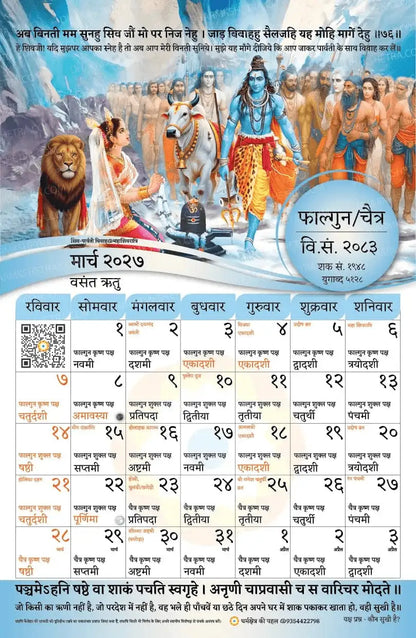 अब बिनती मम सुनहु सिव जौं मो पर निज नेहु । जाइ बिवाहहु सैलजहि यह मोहि मागें देहु ॥७६॥
हे शिवजी! यदि मुझपर आपका स्नेह है तो अब आप मेरी विनती सुनिये। मुझे यह माँगे दीजिये कि आप जाकर पार्वती के साथ विवाह कर लें।
शिव-पार्वती विवाह@महाशिवरात्रि
फाल्गुन/चैत्र
वि.सं. २०८३
शक सं. १९४८
युगाब्द ५१२८
मार्च २०२७
वसंत ऋतु
रविवार सोमवार मंगलवार बुधवार गुरुवार शुक्रवार शनिवार
१ २ ३ ४ ५ ६
विजया एकादशी प्रदोष व्रत महा शिवरात्रि
फाल्गुन कृष्ण पक्ष फाल्गुन कृष्ण पक्ष फाल्गुन कृष्ण पक्ष फाल्गुन कृष्ण पक्ष फाल्गुन कृष्ण पक्ष फाल्गुन कृष्ण पक्ष
नवमी दशमी एकादशी एकादशी द्वादशी त्रयोदशी
७ ८ ९ १० ११ १२ १३
फुलैरा दूज
फाल्गुन कृष्ण पक्ष फाल्गुन कृष्ण पक्ष फाल्गुन शुक्ल पक्ष फाल्गुन शुक्ल पक्ष फाल्गुन शुक्ल पक्ष फाल्गुन शुक्ल पक्ष फाल्गुन शुक्ल पक्ष
चतुर्दशी अमावस्या प्रतिपदा द्वितीया तृतीया चतुर्थी पंचमी
१४ १५ १६ १७ १८ १९ २०
मीन संक्रांति होलाष्टक प्रारम्भ आमलकी एकादशी प्रदोष व्रत
फाल्गुन शुक्ल पक्ष फाल्गुन शुक्ल पक्ष फाल्गुन शुक्ल पक्ष फाल्गुन शुक्ल पक्ष फाल्गुन शुक्ल पक्ष फाल्गुन शुक्ल पक्ष फाल्गुन शुक्ल पक्ष
षष्ठी सप्तमी अष्टमी नवमी एकादशी द्वादशी त्रयोदशी
२१ २२ २३ २४ २५ २६ २७
होलिका दहन होली, रंग पंचमी
फाल्गुन शुक्ल पक्ष फाल्गुन शुक्ल पक्ष चैत्र कृष्ण पक्ष चैत्र कृष्ण पक्ष चैत्र कृष्ण पक्ष चैत्र कृष्ण पक्ष चैत्र कृष्ण पक्ष
चतुर्दशी पूर्णिमा प्रतिपदा द्वितीया तृतीया चतुर्थी पंचमी
२८ २९ ३० ३१ १ २ ३
मार्च मार्च मार्च मार्च अप्रैल अप्रैल अप्रैल
पञ्चमेऽहनि षष्ठे वा शाकं पचति स्वगृहे । अनृणी चाप्रवासी च स वारिचर मोदते॥
जो किसी का ऋणी नहीं है, जो परदेश में नहीं है, वह भले ही पाँचवें या छठे दिन अपने घर में शाक पकाकर खाता हो, वही सुखी है।।
धर्मक्षेत्र की पहल @9354422798
यक्ष प्रश्न - कौन सुखी है?